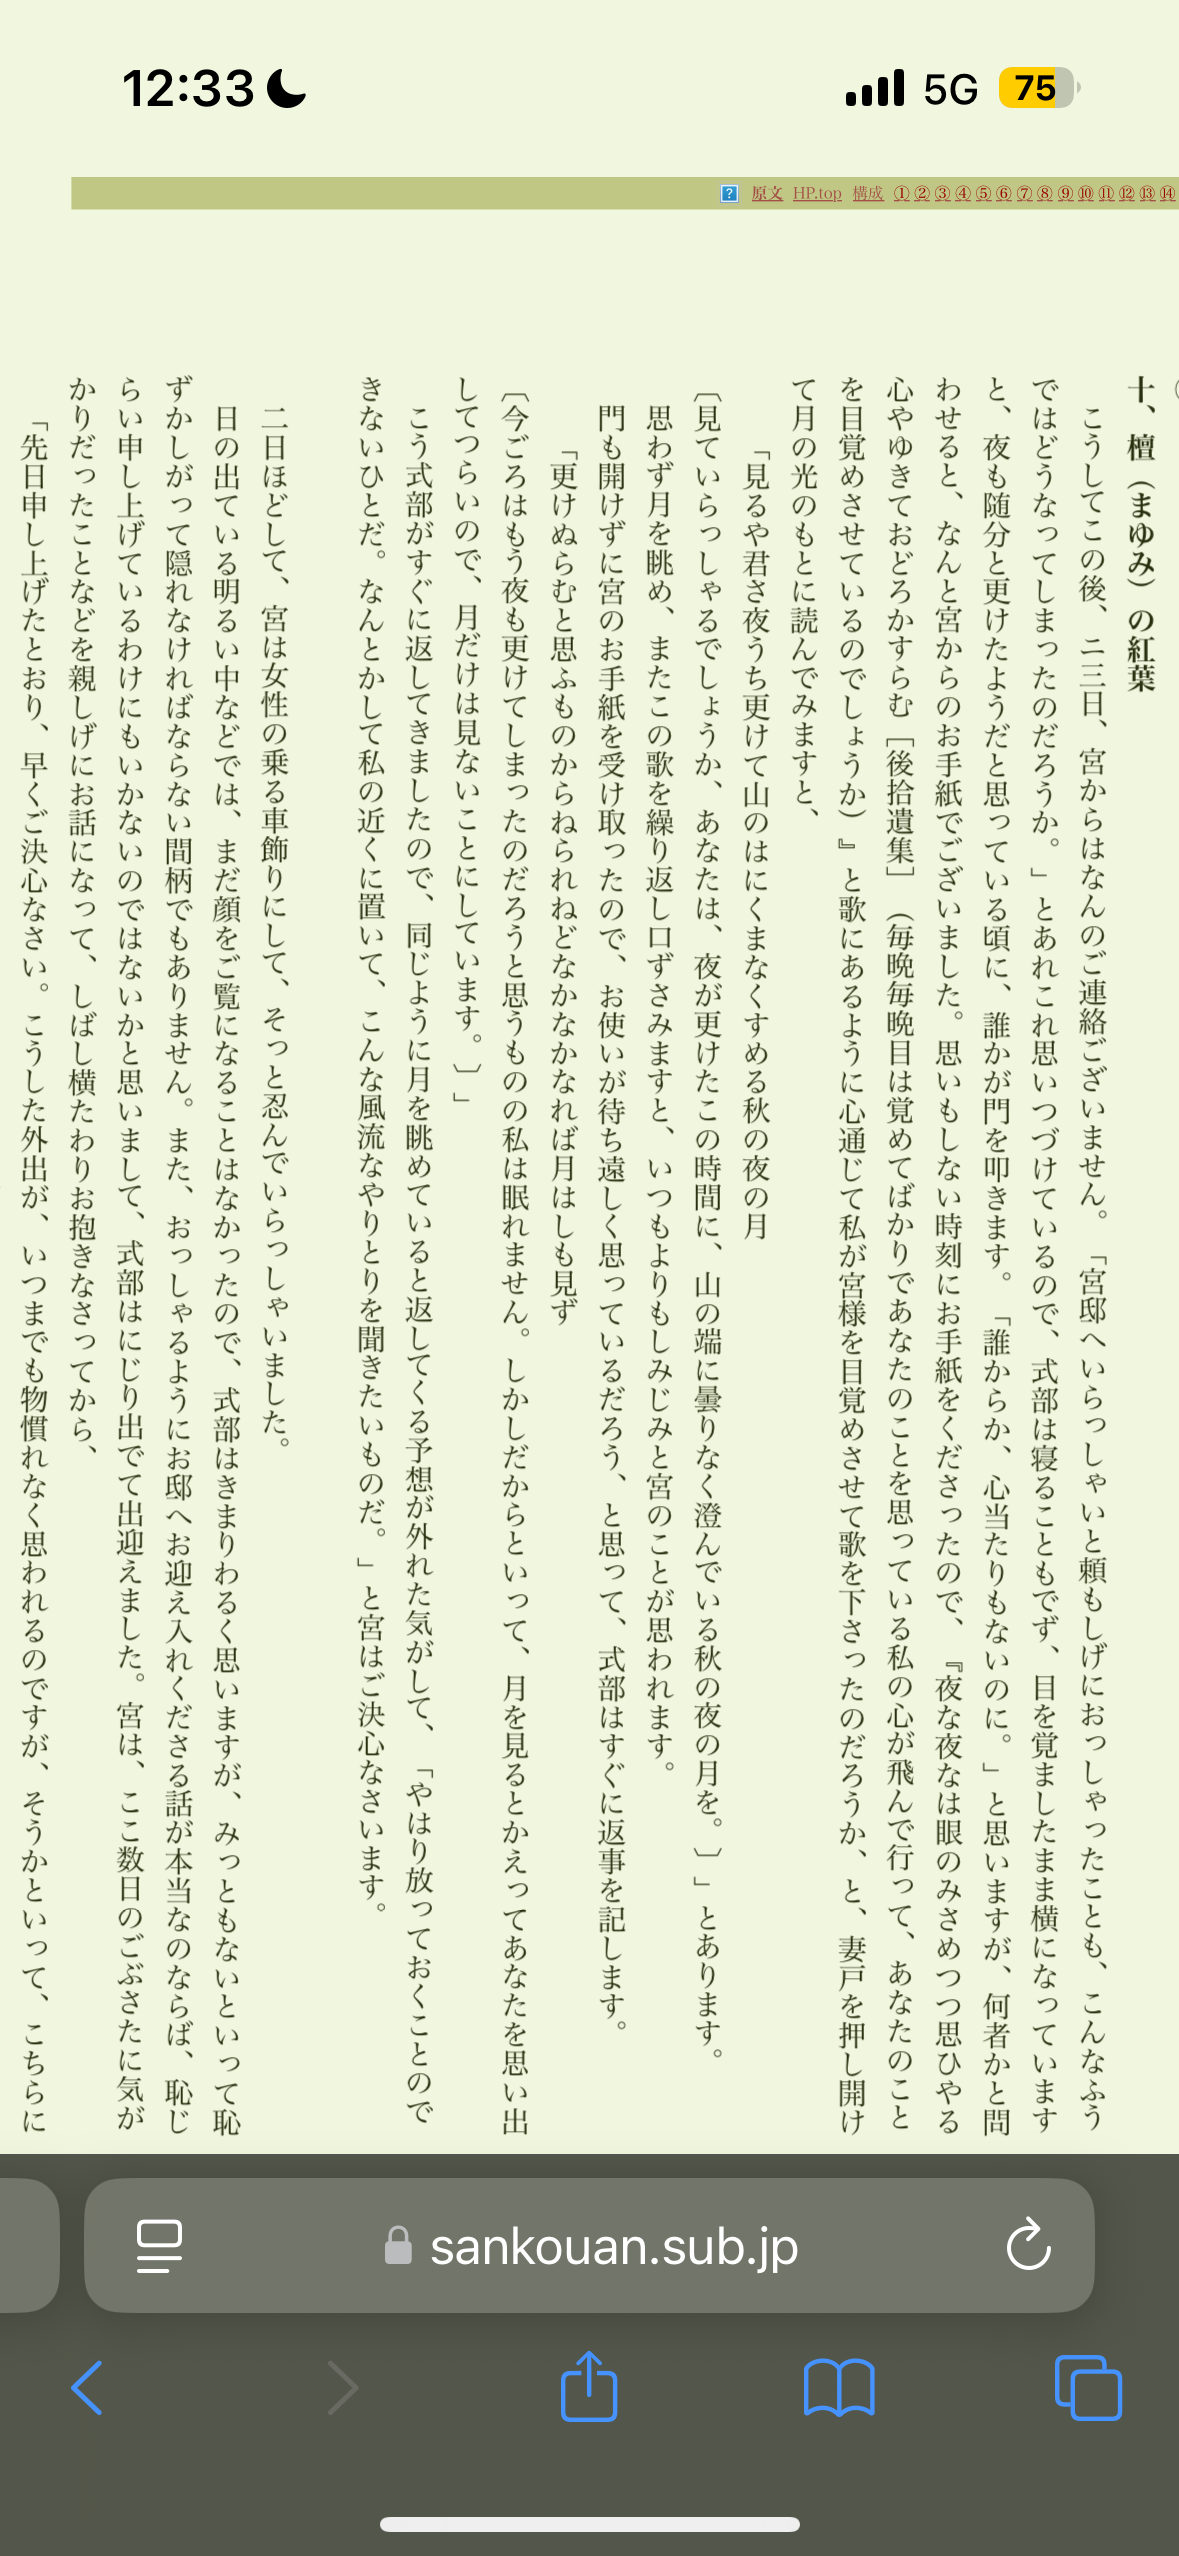 12:33
5G
75
原文 HP.top 構成 ① ② ③ ④ ⑤ ⑥ ⑦ ⑧ ⑨ ⑩ ⑪ ⑫ ⑬ ⑭
十、檀（まゆみ）の紅葉
こうしてこの後、二三日、宮からはなんのご連絡ございません。「宮邸へいらっしゃいと頼もしげにおっしゃったことも、こんなふう
ではどうなってしまったのだろうか。」とあれこれ思いつづけているので、式部は寝ることもでず、目を覚ましたまま横になっています
と、夜も随分と更けたようだと思っている頃に、誰かが門を叩きます。「誰からか、心当たりもないのに。」と思いますが、何者かと問
わせると、なんと宮からのお手紙でございました。思いもしない時刻にお手紙をくださったので、『夜な夜なは眼のみさめつつ思ひやる
心やゆきておどろかすらむ［後拾遺集］（毎晩毎晩目は覚めてばかりであなたのことを思っている私の心が飛んで行って、あなたのこと
を目覚めさせているのでしょうか）』と歌にあるように心通じて私が宮様を目覚めさせて歌を下さったのだろうか、と、妻戸を押し開け
て月の光のもとに読んでみますと、
「見るや君さ夜うち更けて山のはにくまなくすめる秋の夜の月
〔見ていらっしゃるでしょうか、あなたは、夜が更けたこの時間に、山の端に曇りなく澄んでいる秋の夜の月を。〕」とあります。
思わず月を眺め、またこの歌を繰り返し口ずさみますと、いつもよりもしみじみと宮のことが思われます。
門も開けずに宮のお手紙を受け取ったので、お使いが待ち遠しく思っているだろう、と思って、式部はすぐに返事を記します。
「更けぬらむと思ふものからねられねどなかなかなれば月はしも見ず
〔今ごろはもう夜も更けてしまったのだろうと思うものの私は眠れません。しかしだからといって、月を見るとかえってあなたを思い出
してつらいので、月だけは見ないことにしています。〕」
こう式部がすぐに返してきましたので、同じように月を眺めていると返してくる予想が外れた気がして、「やはり放っておくことので
きないひとだ。なんとかして私の近くに置いて、こんな風流なやりとりを聞きたいものだ。」と宮はご決心なさいます。
二日ほどして、宮は女性の乗る車飾りにして、そっと忍んでいらっしゃいました。
日の出ている明るい中などでは、まだ顔をご覧になることはなかったので、式部はきまりわるく思いますが、みっともないといって恥
ずかしがって隠れなければならない間柄でもありません。また、おっしゃるようにお邸へお迎え入れくださる話が本当なのならば、恥じ
らい申し上げているわけにもいかないのではないかと思いまして、式部はにじり出でて出迎えました。宮は、ここ数日のごぶさたに気が
かりだったことなどを親しげにお話になって、しばし横たわりお抱きなさってから、
「先日申し上げたとおり、早くご決心なさい。こうした外出が、いつまでも物慣れなく思われるのですが、そうかといって、こちらに
sankouan.sub.jp